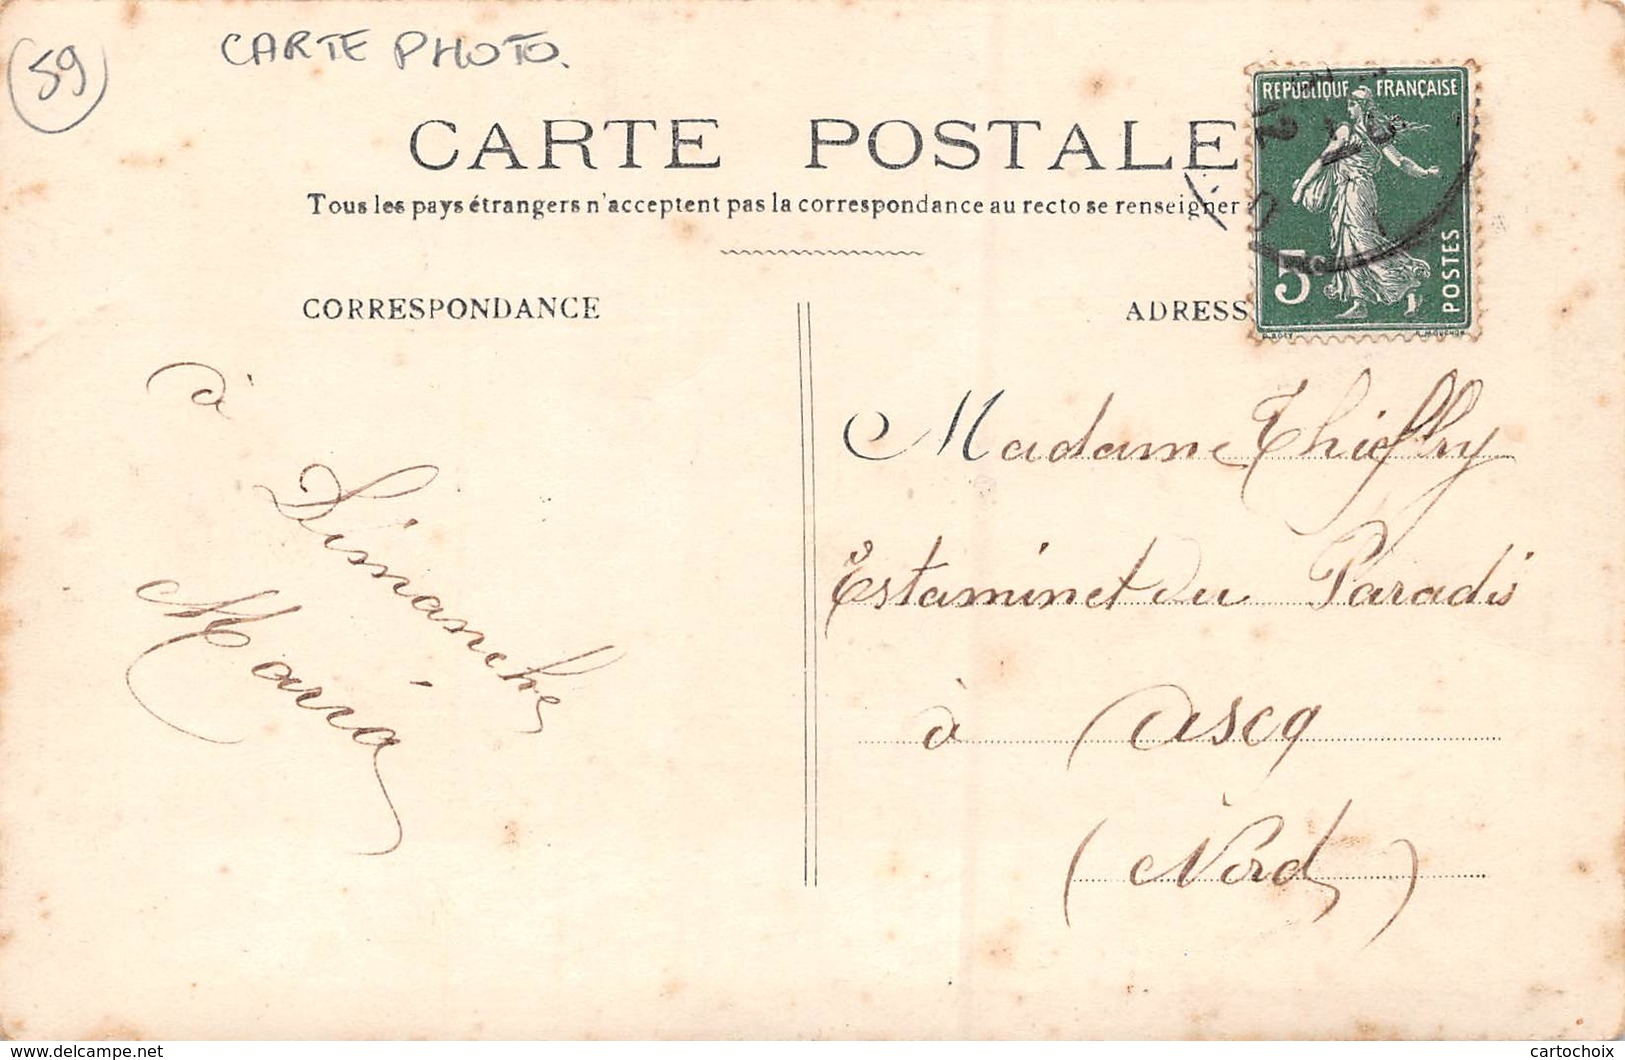 59
CARTE PHOTO.
CARTE POSTALE
Tous les pays étrangers n'acceptent pas la correspondance au recto se renseigner
REPUBLIQUE FRANÇAISE
5c
POSTES
12
CORRESPONDANCE
ADRESS
à
Dimanche
Maria
Madame Thieffry
Estaminet du Paradis
à Ascq
(Nord)
www.delcampe.net
cartochoix